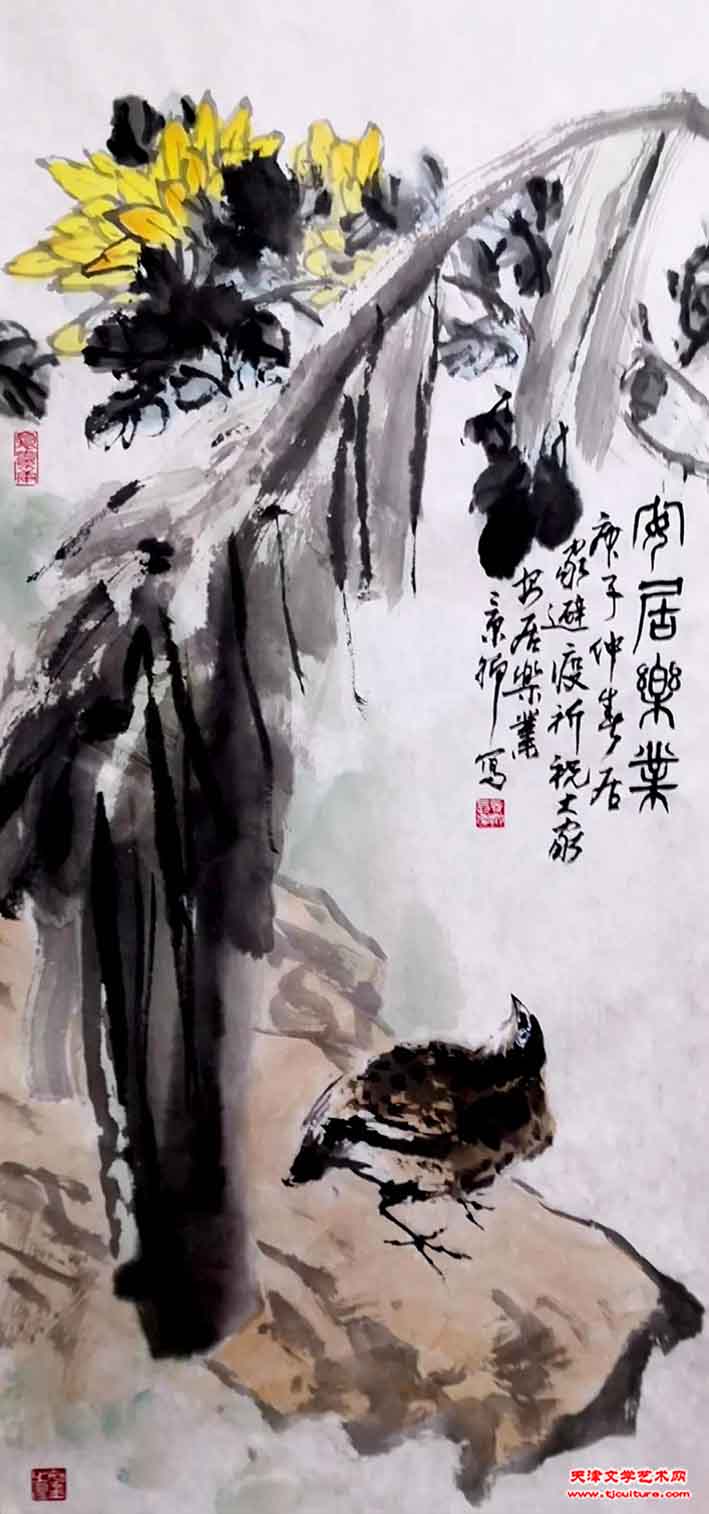 安居樂業
庚子仲春居
家避疫祈祝大家
安居樂業
景柳写
天津文学艺术网
www.tjculture.com